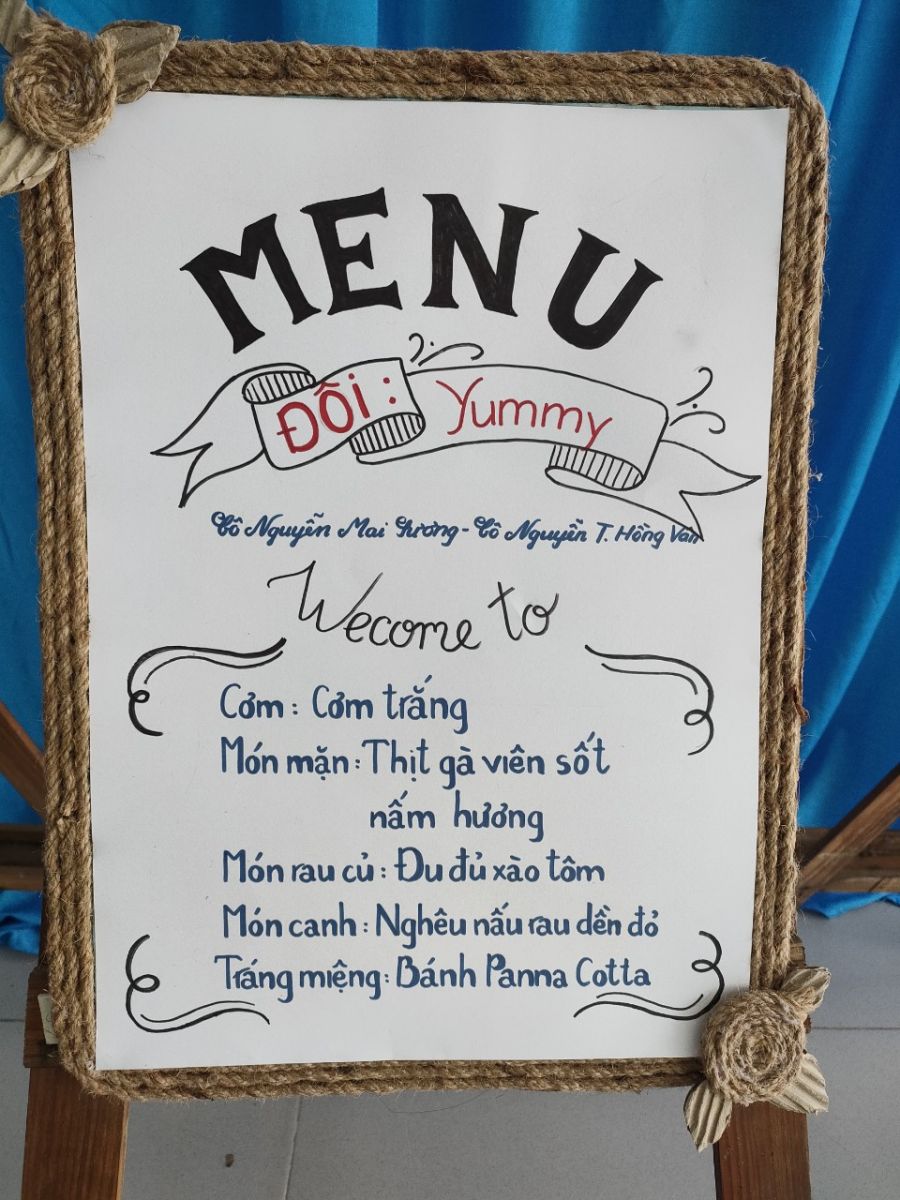 MENU
ĐỘI: Yummy
Cô Nguyễn Mai Phương - Cô Nguyễn T. Hồng Vân
Wecome to
Cơm: Cơm trắng
Món mặn: Thịt gà viên sốt
nấm hương
Món rau củ: Đu đủ xào tôm
Món canh: Nghêu nấu rau dền đỏ
Tráng miệng: Bánh Panna Cotta